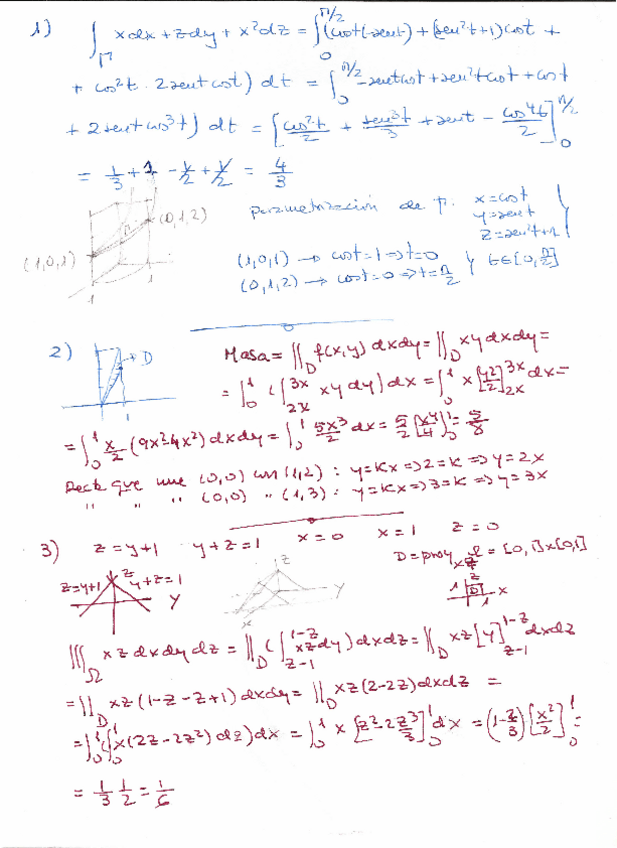 1) ∫_Γ xdx + zdy + x²dz = ∫₀^{π/2} (cost(-sent) + (sen²t+1)cost +
+ cos²t · 2sentcost) dt = ∫₀^{π/2} -sentcost + sen²tcost + cost
+ 2sentcos³t) dt = [cos²t/2 + sen³t/3 + sent - cos⁴t/2]₀^{π/2}
= 1/3 + 1 - 1/2 + 1/2 = 4/3
(0,1,2)
parametrización de Γ: x=cost
y=sent
z=sen²t+1
t∈[0,π/2]
(1,0,1)
(1,0,1) → cost=1 ⇒ t=0
(0,1,2) → cost=0 ⇒ t=π/2
1 1
2) D Masa = ∬_D f(x,y) dxdy = ∬_D xy dxdy =
= ∫₀¹ (∫_{2x}^{3x} xy dy) dx = ∫₀¹ x [y²/2]_{2x}^{3x} dx =
1
= ∫₀¹ x/2 (9x²-4x²) dxdy = ∫₀¹ 5x³/2 dx = 5/2 [x⁴/4]₀¹ = 5/8
Recta que une (0,0) con (1,2): y=kx ⇒ 2=k ⇒ y=2x
" " " (0,0) " (1,3): y=kx ⇒ 3=k ⇒ y=3x
3) z=y+1 y+z=1 x=0 x=1 z=0
D = proy_{xz} Ω = [0,1]x[0,1]
z=y+1 z y+z=1 Y
z Y x
z 1 D 1 x
∭_Ω xz dxdydz = ∬_D (∫_{z-1}^{1-z} xzdy) dxdz = ∬_D xz [y]_{z-1}^{1-z} dxdz
= ∬_D xz (1-z-z+1) dxdy = ∬_D xz(2-2z)dxdz =
= ∫₀¹ (∫₀¹ x(2z-2z²) dz) dx = ∫₀¹ x [z²-2z³/3]₀¹ dx = (1-2/3) [x²/2]₀¹ =
= 1/3 1/2 = 1/6